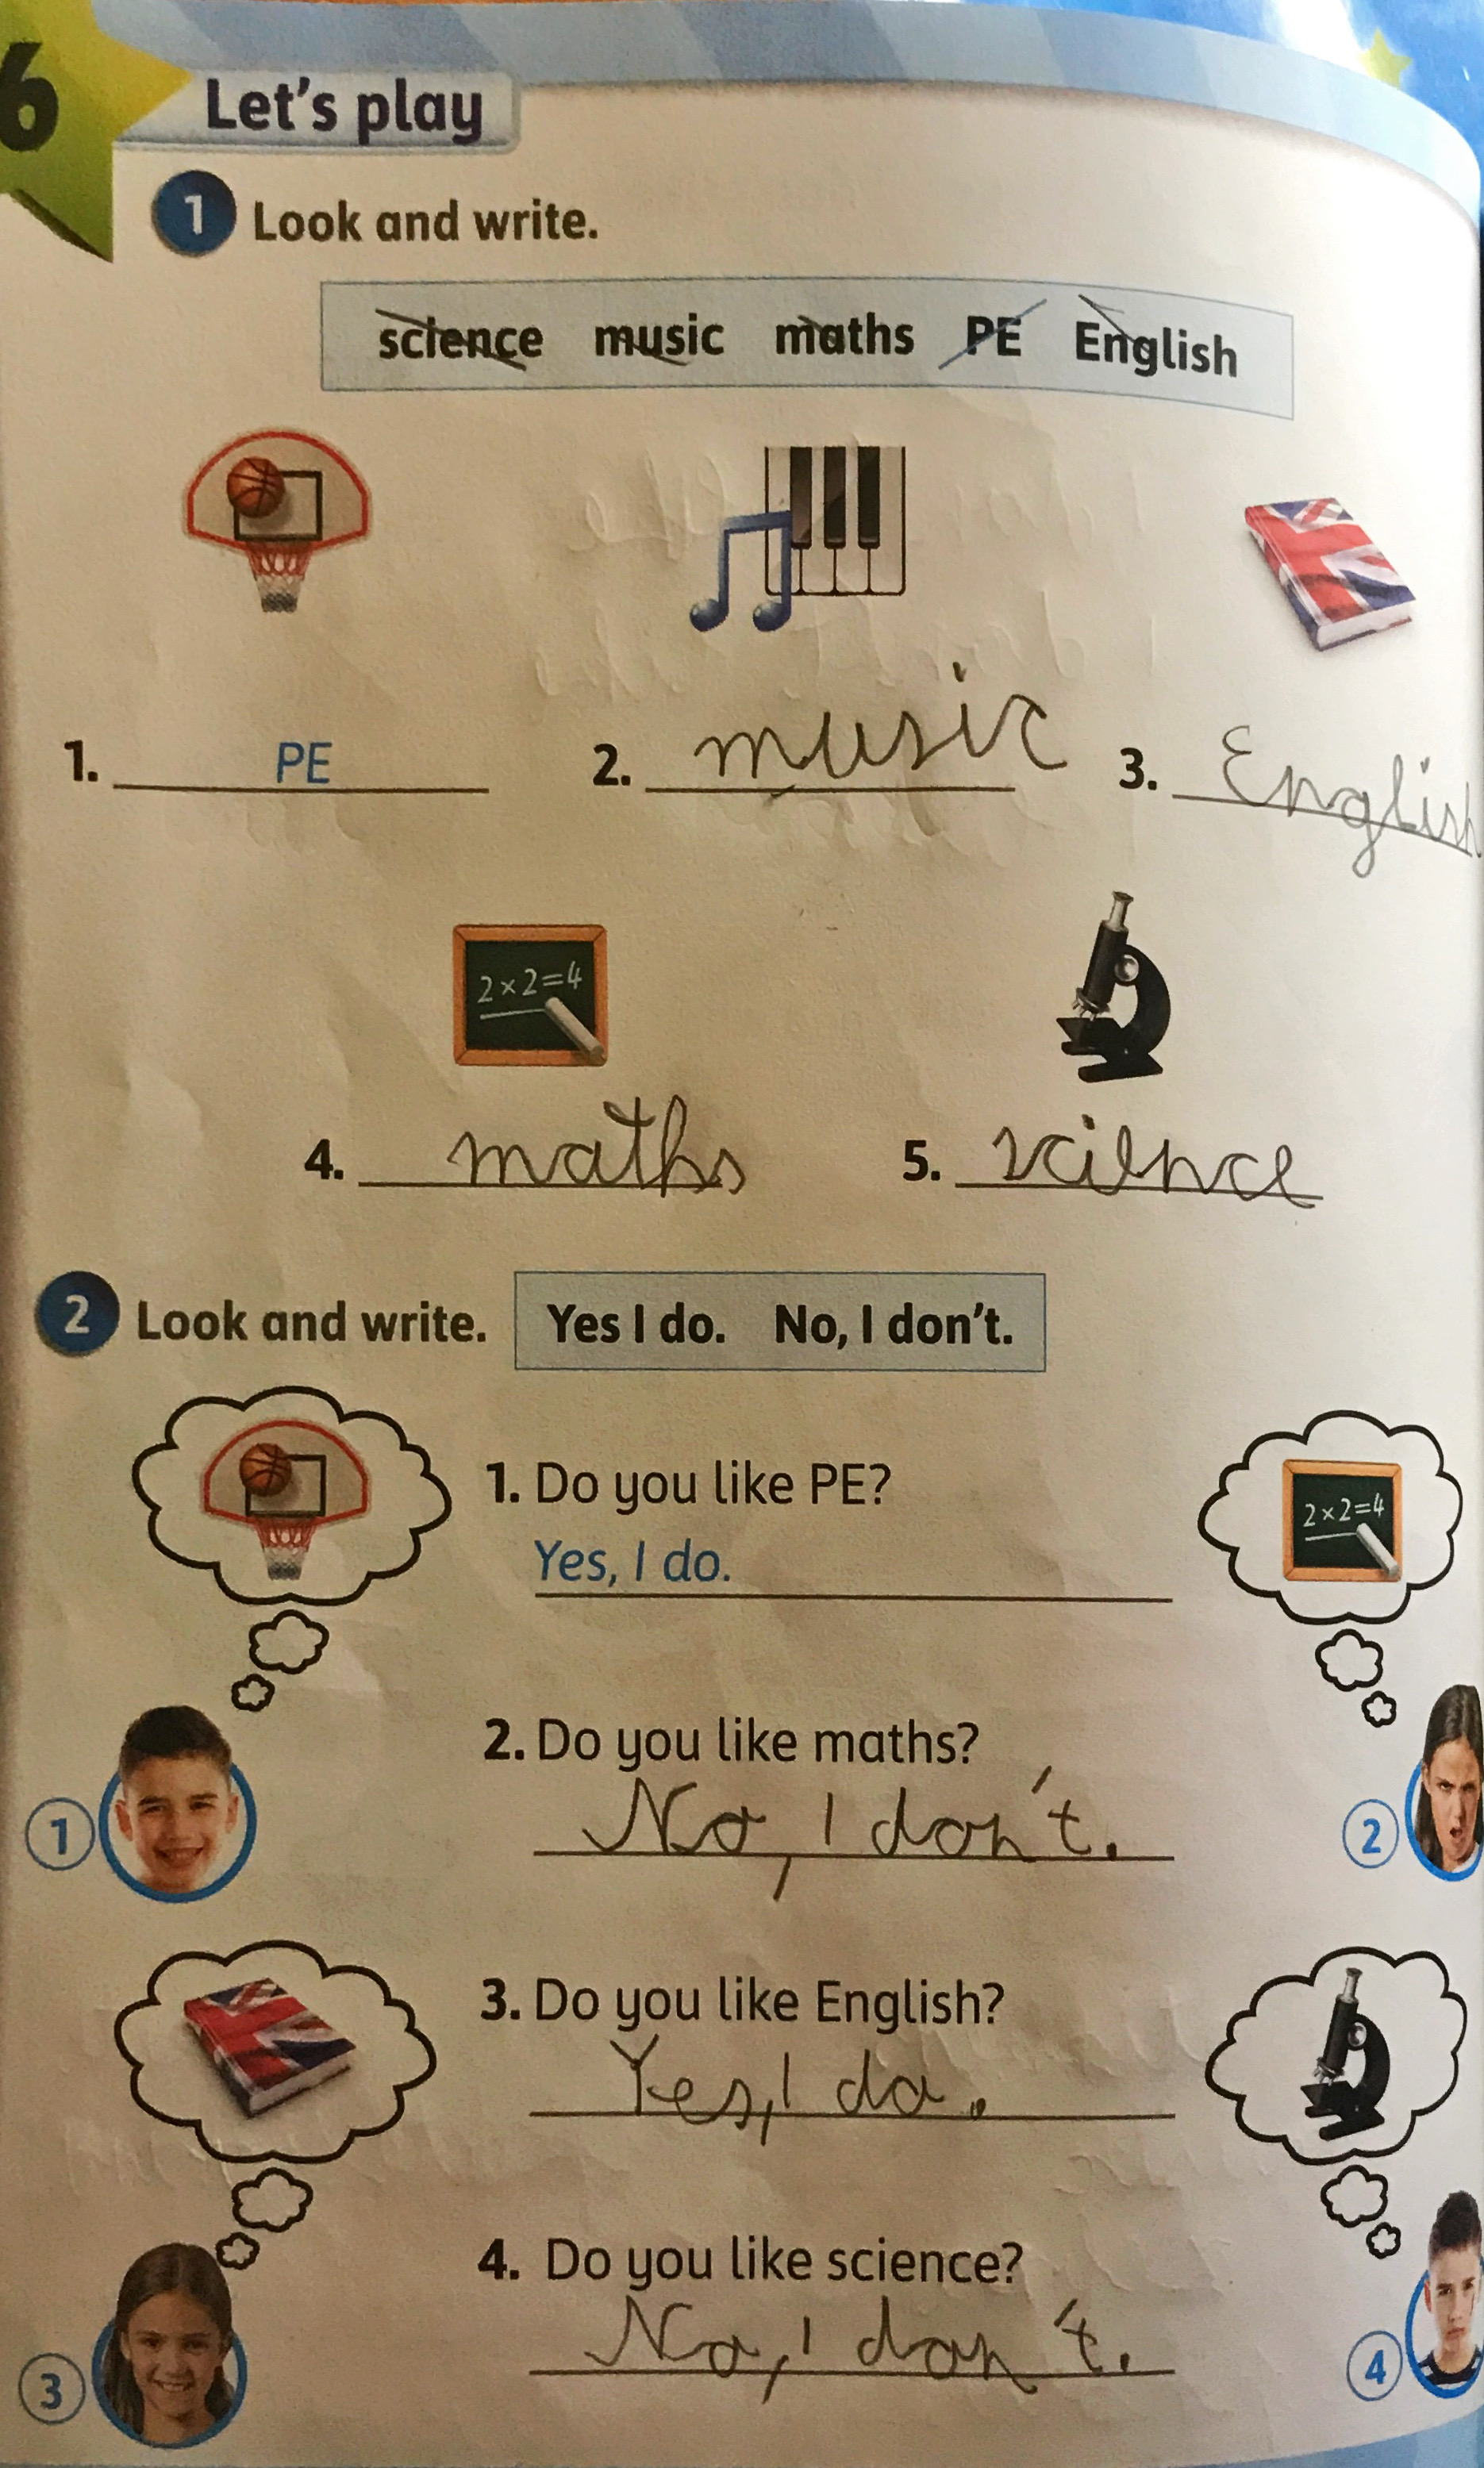 6
Let's play
1 Look and write.
science music maths PE English
1. PE 2. music 3. English
2×2=4
4. maths 5. science
2 Look and write. Yes I do. No, I don't.
1. Do you like PE?
2×2=4
Yes, I do.
2. Do you like maths?
1 No, I don't. 2
3. Do you like English?
Yes, I do.
4. Do you like science?
3 No, I don't. 4